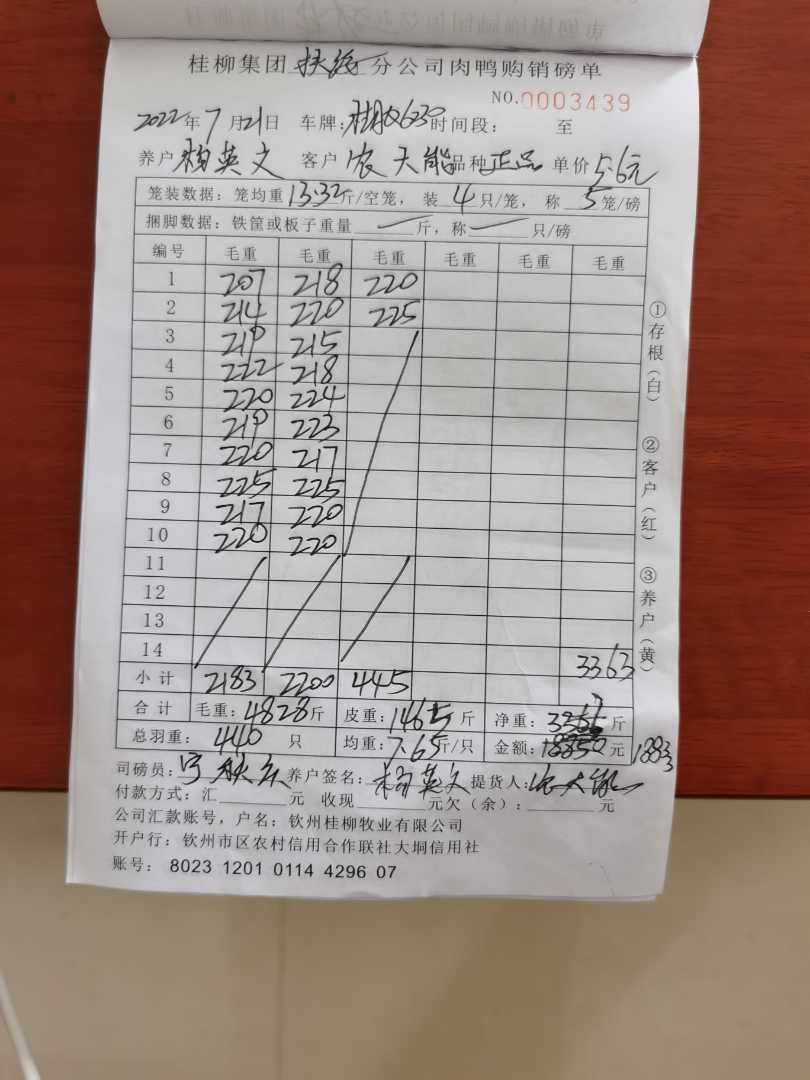 桂柳集团扶绥分公司肉鸭购销磅单
NO.0003439
2022年7月21日 车牌: 时间段: 至
养户 杨英文 客户 农天能 品种 正品 单价 5.6元
笼装数据: 笼均重 13.32 斤/空笼, 装 4 只/笼, 称 5 笼/磅
捆脚数据: 铁筐或板子重量 斤, 称 只/磅
编号 毛重 毛重 毛重 毛重 毛重 毛重
1 207 218 220
2 214 220 225
3 219 215
4 222 218
5 220 224
6 219 223
7 220 217
8 225 225
9 217 220
10 220 220
11
12
13
14 3363
小计 2183 2200 445
合计 毛重: 4828斤 皮重: 1465斤 净重: 斤
总羽重: 440 只 均重: 7.65斤/只 金额: 18850元 18833
司磅员: 养户签名: 杨英文 提货人: 农天能
付款方式: 汇 元 收现 元欠(余): 元
公司汇款账号, 户名: 钦州桂柳牧业有限公司
开户行: 钦州市区农村信用合作联社大垌信用社
账号: 8023 1201 0114 4296 07
①存根(白) ②客户(红) ③养户(黄)